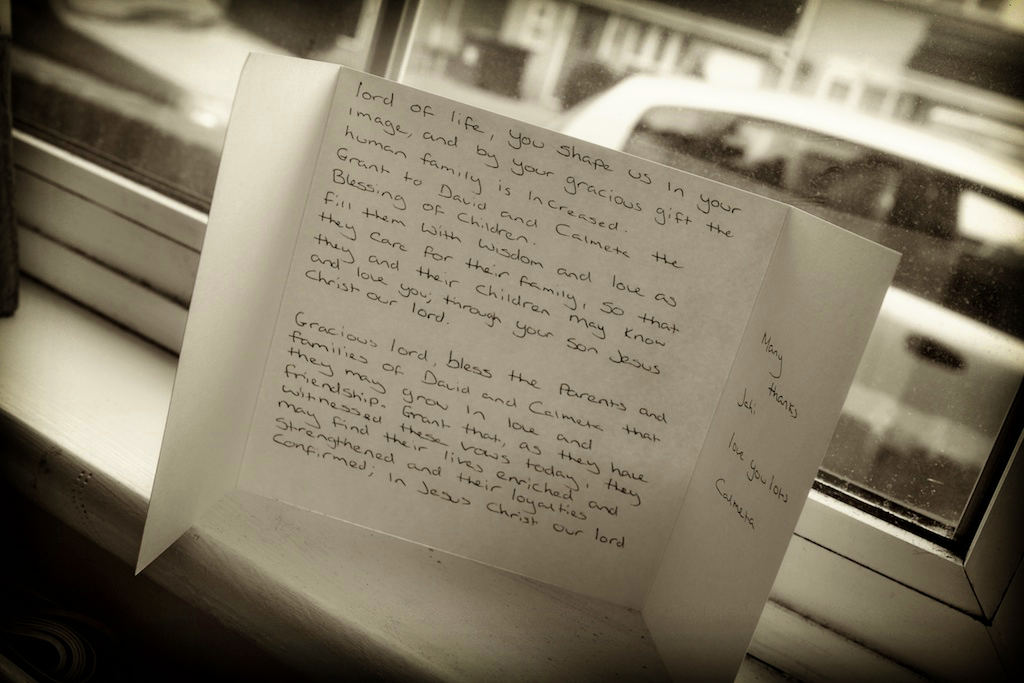 lord of life, you shape us in your
image, and by your gracious gift the
human family is increased.
Grant to David and Calmeta the
Blessing of Children.
fill them with wisdom and love as
they care for their family, so that
they and their children may know
and love you; through your son Jesus
Christ our lord.
Gracious lord, bless the Parents and
families of David and Calmeta that
they may grow in love and
friendship. Grant that, as they have
witnessed these vows today, they
may find their lives enriched and
strengthened and their loyalties
confirmed; in Jesus Christ our lord
Many
thanks
Jaki
love you lots
Calmeta